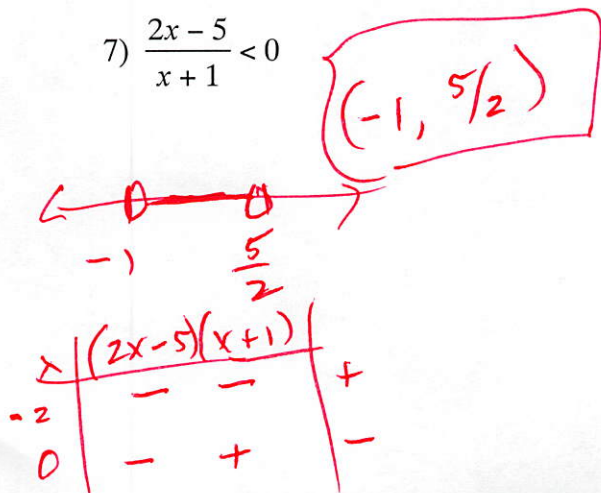 7) (2x − 5)/(x + 1) < 0
(-1, 5/2)
-1 5/2
x (2x-5)(x+1)
-2 − − +
0 − + −